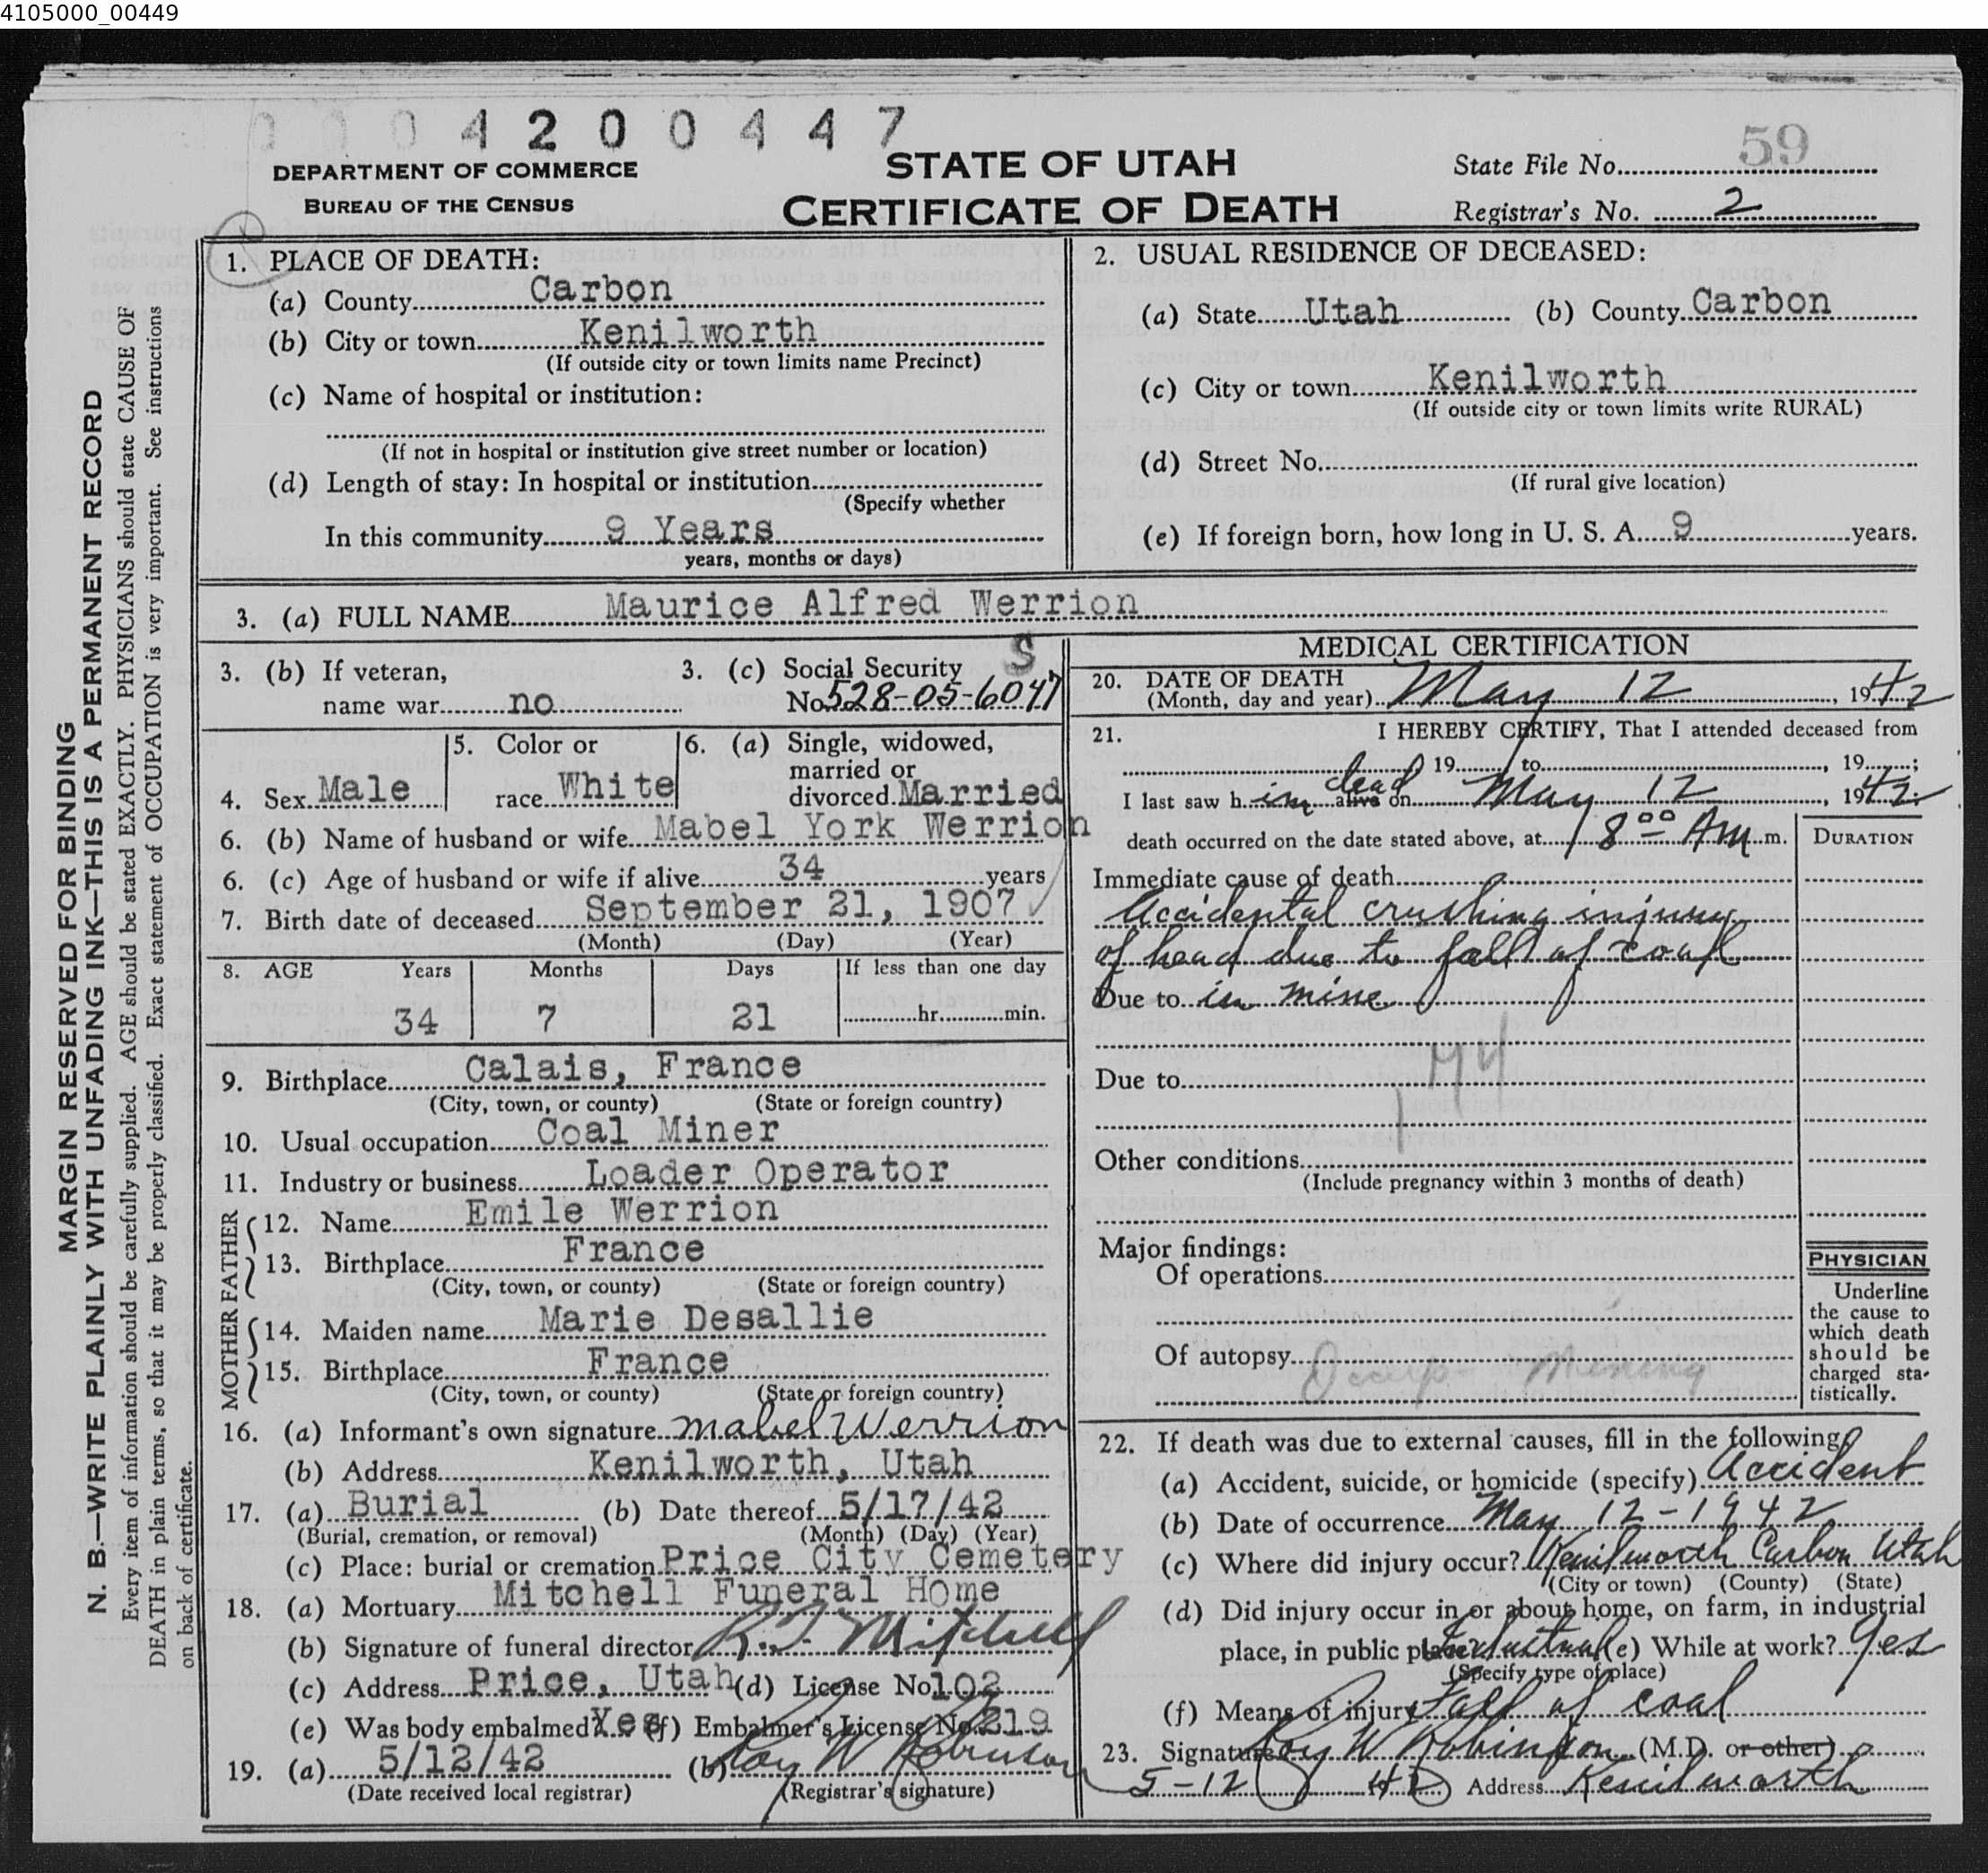 4105000_00449
0 0 0 4 2 0 0 4 4 7
59
DEPARTMENT OF COMMERCE
BUREAU OF THE CENSUS
STATE OF UTAH
CERTIFICATE OF DEATH
State File No.
Registrar's No. 2
MARGIN RESERVED FOR BINDING
N. B.—WRITE PLAINLY WITH UNFADING INK—THIS IS A PERMANENT RECORD
Every item of information should be carefully supplied. AGE should be stated EXACTLY. PHYSICIANS should state CAUSE OF
DEATH in plain terms, so that it may be properly classified. Exact statement of OCCUPATION is very important. See instructions
on back of certificate.
1. PLACE OF DEATH:
(a) County Carbon
(b) City or town Kenilworth
(If outside city or town limits name Precinct)
(c) Name of hospital or institution:
(If not in hospital or institution give street number or location)
(d) Length of stay: In hospital or institution
(Specify whether
In this community 9 Years
years, months or days)
2. USUAL RESIDENCE OF DECEASED:
(a) State Utah (b) County Carbon
(c) City or town Kenilworth
(If outside city or town limits write RURAL)
(d) Street No.
(If rural give location)
(e) If foreign born, how long in U. S. A. 9 years.
3. (a) FULL NAME Maurice Alfred Werrion
3. (b) If veteran,
name war no
3. (c) Social Security S
No. 528-05-6047
4. Sex Male
5. Color or
race White
6. (a) Single, widowed,
married or
divorced Married
6. (b) Name of husband or wife Mabel York Werrion
6. (c) Age of husband or wife if alive 34 years
7. Birth date of deceased September 21, 1907
(Month) (Day) (Year)
8. AGE Years Months Days If less than one day
34 7 21 hr. min.
9. Birthplace Calais, France
(City, town, or county) (State or foreign country)
10. Usual occupation Coal Miner
11. Industry or business Loader Operator
FATHER
12. Name Emile Werrion
13. Birthplace France
(City, town, or county) (State or foreign country)
MOTHER
14. Maiden name Marie Desallie
15. Birthplace France
(City, town, or county) (State or foreign country)
16. (a) Informant's own signature Mabel Werrion
(b) Address Kenilworth, Utah
17. (a) Burial (b) Date thereof 5/17/42
(Burial, cremation, or removal) (Month) (Day) (Year)
(c) Place: burial or cremation Price City Cemetery
18. (a) Mortuary Mitchell Funeral Home
(b) Signature of funeral director Mitchell
(c) Address Price, Utah (d) License No. 102
(e) Was body embalmed? Yes (f) Embalmer's License No. 219
19. (a) 5/12/42 (b) Roy W Robinson
(Date received local registrar) (Registrar's signature)
MEDICAL CERTIFICATION
20. DATE OF DEATH
(Month, day and year) May 12, 1942
21. I HEREBY CERTIFY, That I attended deceased from
, 19 to , 19 ;
I last saw h im alive dead on May 12, 1942;
death occurred on the date stated above, at 8 00 Am m.
DURATION
Immediate cause of death
Accidental crushing injury
of head due to fall of coal
Due to in mine
Due to
Other conditions
(Include pregnancy within 3 months of death)
Major findings:
Of operations
Of autopsy
Occup- Mining
PHYSICIAN
Underline
the cause to
which death
should be
charged sta-
tistically.
22. If death was due to external causes, fill in the following
(a) Accident, suicide, or homicide (specify) Accident
(b) Date of occurrence May 12-1942
(c) Where did injury occur? Kenilworth Carbon Utah
(City or town) (County) (State)
(d) Did injury occur in or about home, on farm, in industrial
place, in public place? Industrial (e) While at work? yes
(Specify type of place)
(f) Means of injury Fall of coal
23. Signature Roy W Robinson (M.D. or other)
5-12 42 Address Kenilworth